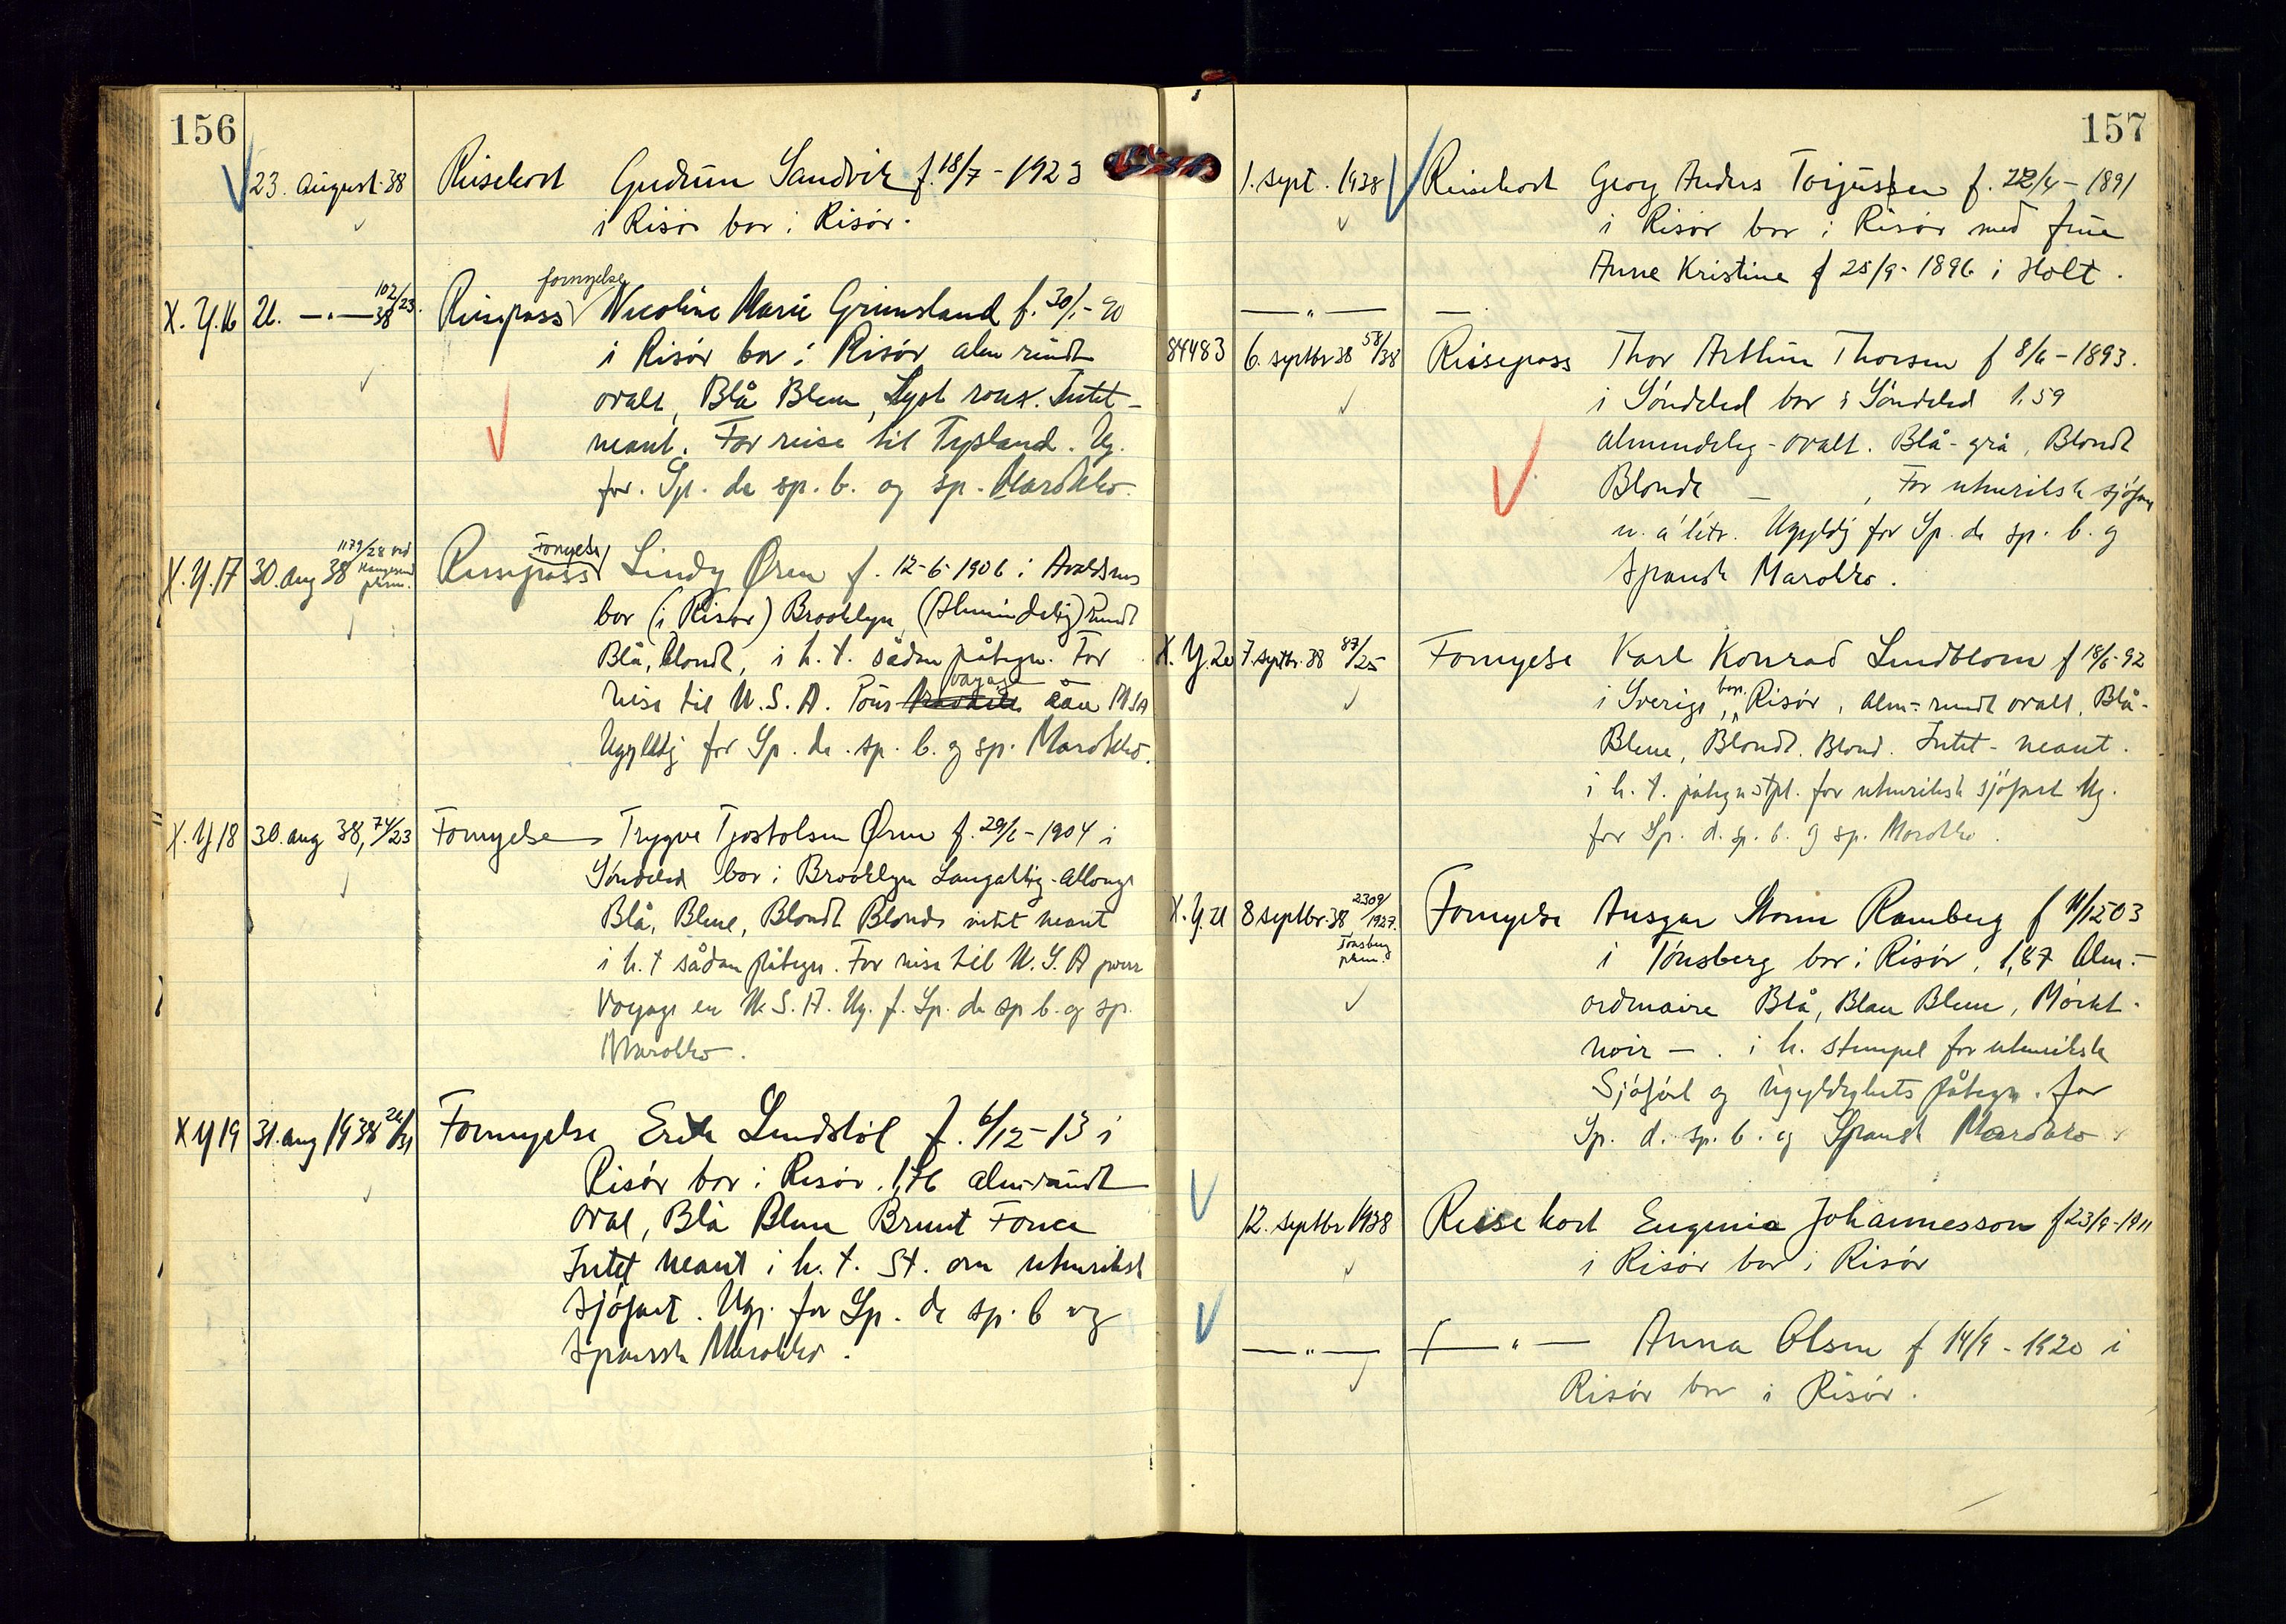 156
23. august 38 Reisekort Gudrun Sandvik f. 18/7 - 1923
i Risør bor i Risør.
fornyelse
X.Y.16 26. — " — 38 102/23. Reisepass Nicoline Marie Grimsland f. 30/1 - 90
i Risør bor i Risør alm rundt
ovalt, Blå Bleu, Lyst roux. Intet -
neant. For reise til Tyskland. Ug.
for. Sp. de sp. b. og sp. Marokko.
1179/28 ved Haugesund pkm.
Fornyelse
X.Y.17 30. aug 38 Reisepass Lindy Øren f. 12-6-1906 i Avaldsnes
bor (i Risør) Brooklyn, (Almindelig) rundt
Blå, blondt, i h. t. sådan påtegn. For
voyage
reise til U.S.A. Pour aux USA
Ugyldig for Sp. de. sp. b. og sp. Marokko.
X.Y.18 30. aug 38, 74/23 Fornyelse Trygve Tjostolsen Øren f. 29/6 - 1904 i
Söndeled bor i Brooklyn Langaktig - allongé
Blå, Bleue, Blondt Blonde intet neant
i h. t sådan påtegn. For reise til U.S.A pour
Voyage en U.S.A. Ug. f. Sp. de sp b. og sp.
Marokko.
X Y 19 31. aug 1938 26/31 Fornyelse Erik Lindstøl f. 6/12 - 13 i
Risør bor i Risør. 1,76 alm rundt
oval, Blå Bleue Brunt Foncé
Intet neant i h. t. St. om utenriksk
sjöfart. Ug. for Sp. de sp. b og
Spansk Marokko.
157
1. sept. 1938 Reisekort Georg Anders Torjussen f. 22/4 - 1891
i Risør bor i Risør med frue
Anne Kristine f 25/9 - 1896 i Holt.
— " — —
84483 6. septbr 38 58/38 Reisepass Thor Arthur Thorsen f 8/6 - 1893.
i Söndeled bor i Söndeled 1.59
almindelig - ovalt. Blå - grå, Blondt
Blonde — , For utenriksk sjöfart
u. a' létr. Ugyldig for Sp. de sp. b. og
Spansk Marokko.
X.Y.20 7. septbr. 38 87/25 Fornyelse Karl Konrad Lindblom f 18/6 - 92
i Sverige, bor i Risør, alm - rundt ovalt, Blå -
Bleue, Blondt. Blond. Intet - neant.
i h. t. påtegn stpl. for utenriksk sjöfart Ug.
for Sp. d. sp. b. og sp. Marokko.
X.Y.21 8 septbr. 38 2309/1927. Tönsberg pkm. Fornyelse Ansgar Storm Ramberg f 11/12 03
i Tönsberg bor i Risør, 1,87 Alm. -
ordinaire Blå, Blau Bleue, Mörkt -
noir — . i h. stempel for utenriksk
Sjöfart og Ugyldighets påtegn. for
Sp. d. sp. b. og Spansk Marokko
12. septbr 1938 Reisekort Eugenie Johannesson f 23/9 - 1911
i Risør bor i Risør
— " — — " — Anna Olsen f 14/9 - 1920 i
Risør bor i Risør.